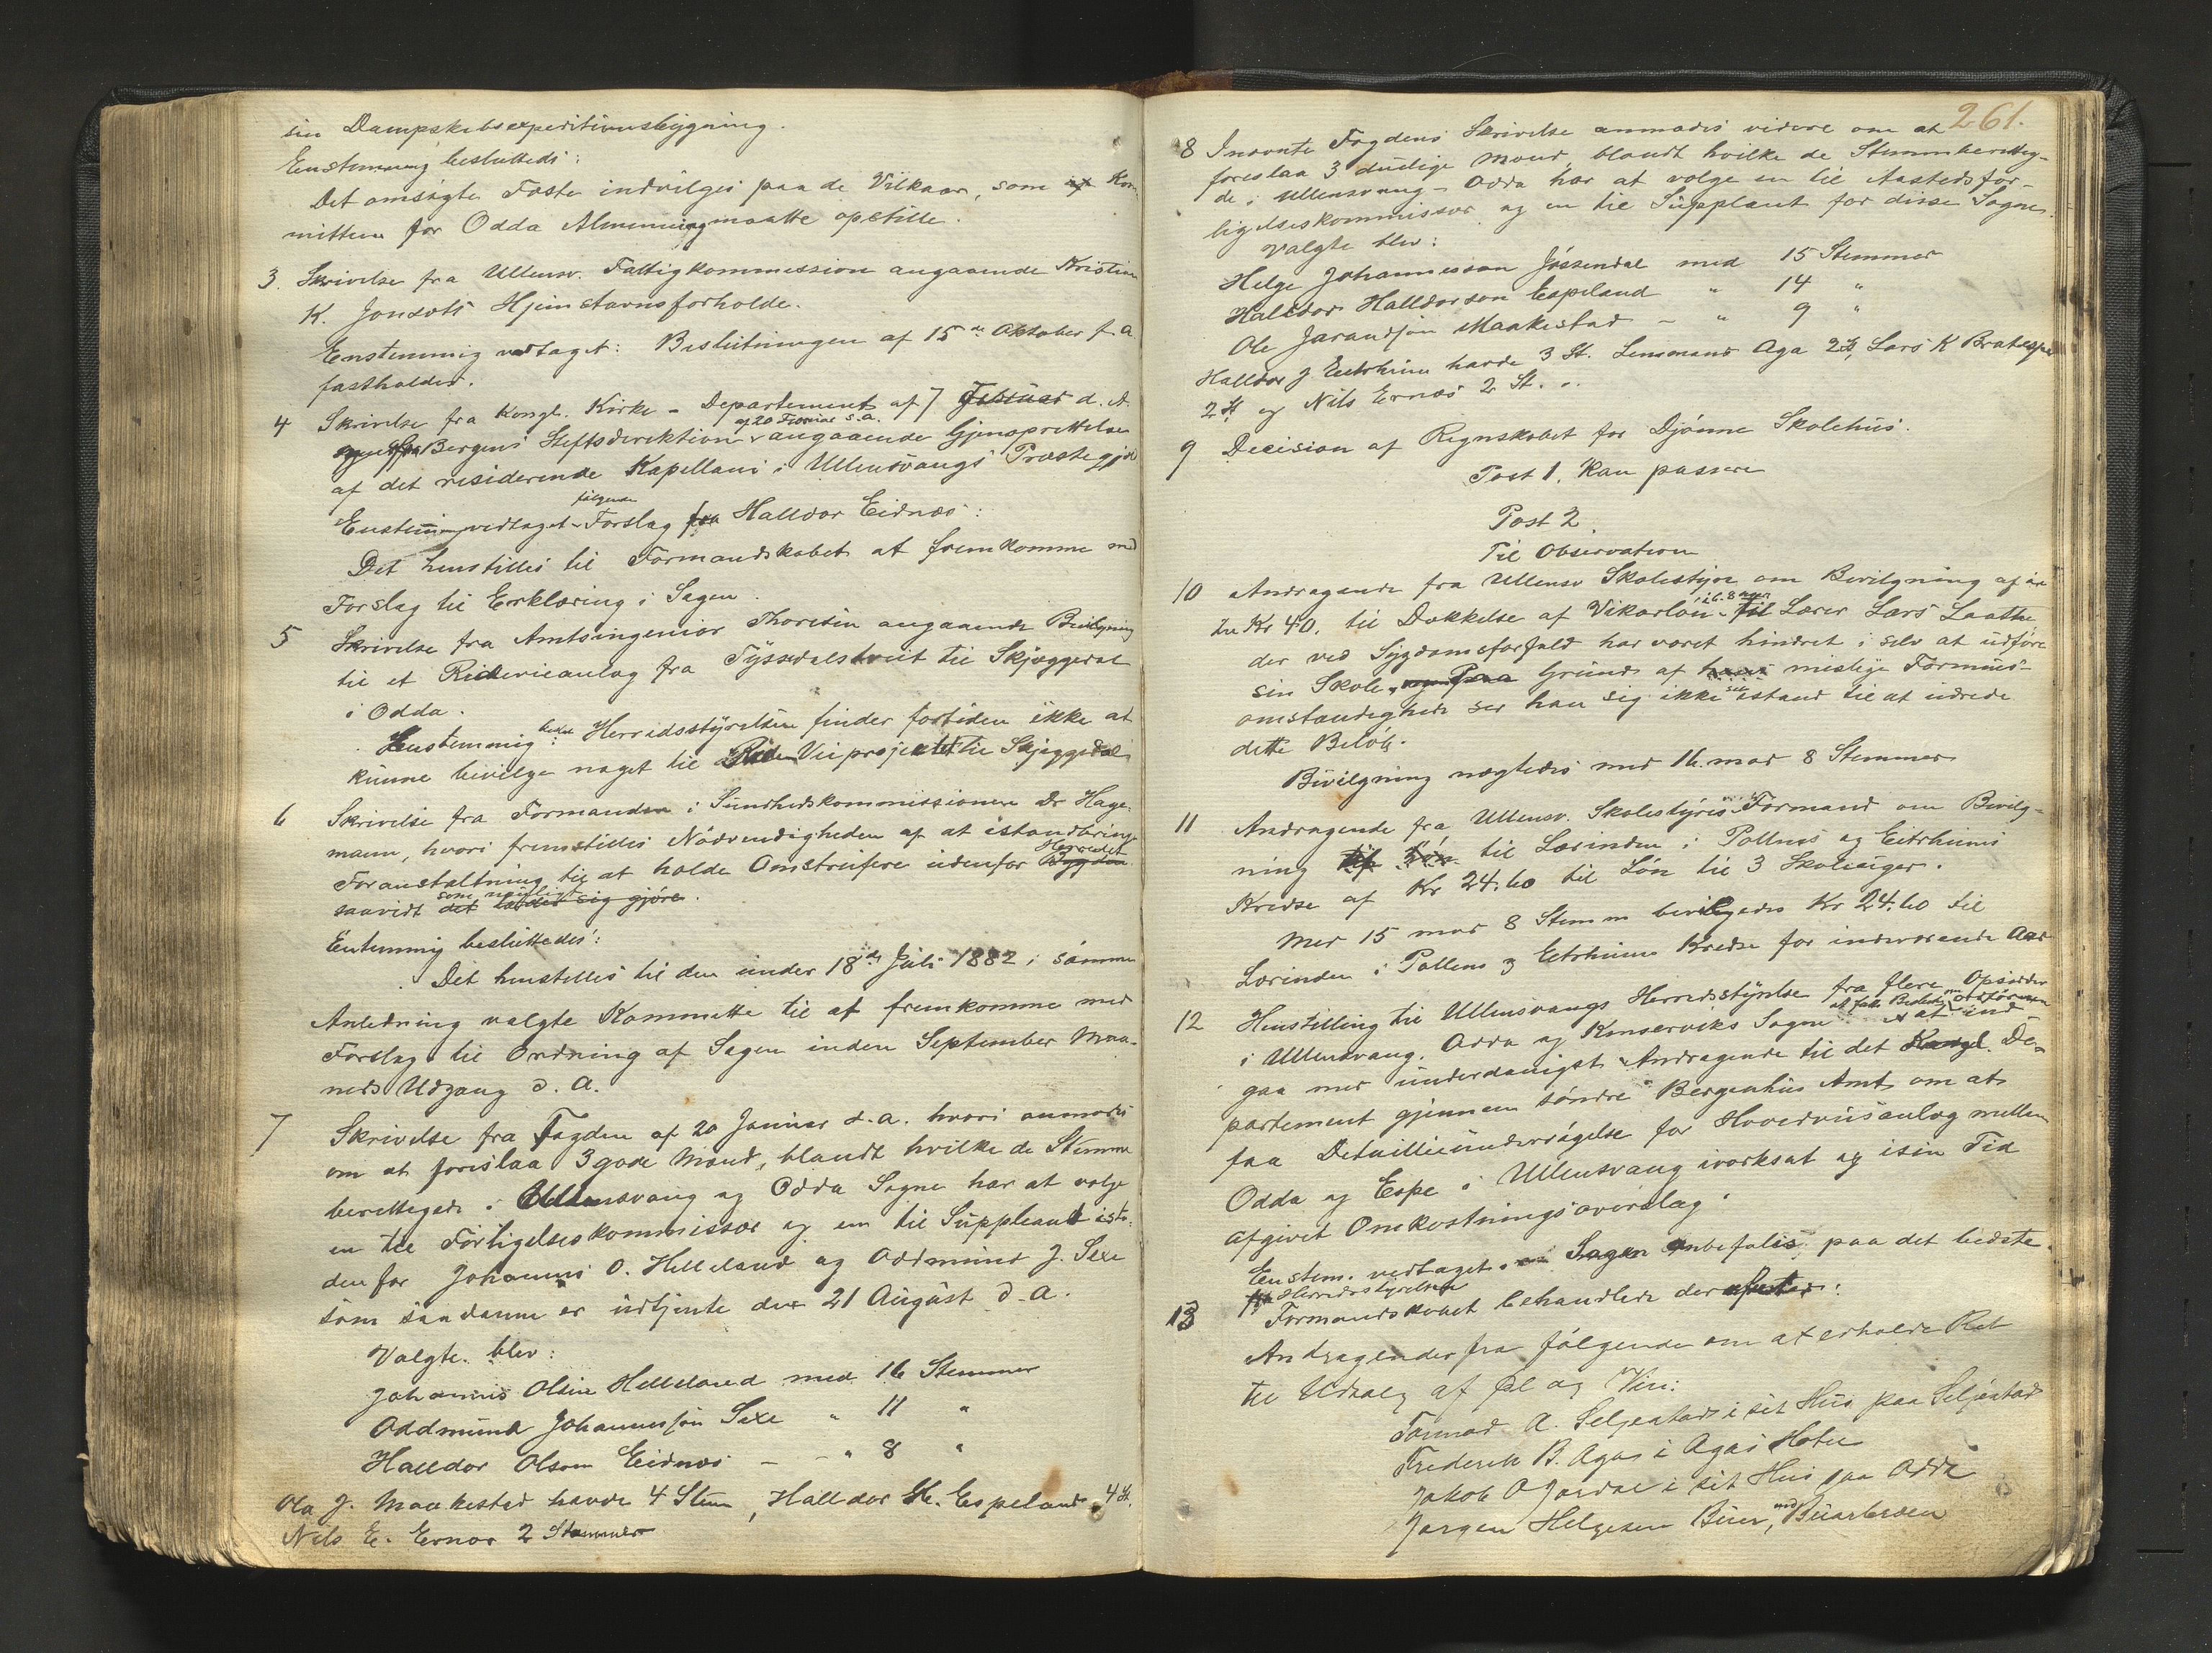 sin Dampskibsexpeditionsbygning.
Enstemmig besluttedes:
Det omsøgte Fæste indvilges paa de Vilkaar, som Kom-
mitteen for Odda Almenning maatte opstille.
3. Skrivelse fra Ullensv. Fattigkommission angaaende Kristian
K. Jonsæts Hjemstavnsforholde.
Enstemmig vedtaget: Beslutningen af 15de Oktober f. A
fastholdes.
4 Skrivelse fra Kongl. Kirke-Departement af 7 Februar d. A.
af 20 Februar s. a.
Bergens Stiftsdirektion angaaende Gjenoprettelse
af det residerende Kapellani i Ullensvangs Præstegjeld
følgende
Enstem. vedtaget Forslag fra Halldor Eidnæs:
Det henstilles til Formandskabet at fremkomme med
Forslag til Erklæring i Sagen.
5 Skrivelse fra Amtsingeniør Thoresen angaaende Bevilgning
til et Rideveianlæg fra Tyssedalstveit til Skjæggedal
i Odda.
Enstemmig: Herredsstyrelsen finder fortiden ikke at
kunne bevilge noget til Veiprojektet til Skjæggedal
6 Skrivelse fra Formanden i Sundhedskommissionen Dr Hage-
mann, hvori fremstilles Nødvendigheden af at istandbringe
Herredet
Foranstaltning til at holde Omstreifere udenfor Bygden
som muligt
saavidt det lader sig gjøre.
Enstemmig besluttedes:
Det henstilles til den under 18de Juli 1882 i samme
Anledning valgte Kommitte til at fremkomme med
Forslag til Ordning af Sagen inden September Maa-
neds Udgang d. A.
7 Skrivelse fra Fogden af 20 Januar d. a. hvori anmodes
om at foreslaa 3 gode Mænd, blandt hvilke de Stemme
berettigede i Ullensvang og Odda Sogne har at vælge
en til Forligelseskommissær og en til Suppleant iste-
den for Johannes O. Helleland og Oddmund J. Sexe
som saadanne er udtjente den 21 August d. A.
Valgte blev:
Johannes Olsen Helleland med 16 Stemmer
Oddmund Johannessøn Sexe " 11 "
Halldor Olsson Eidnæs - - " 8 "
Ola J. Maakestad havde 4 Stem, Halldor H. Espeland 4 St.
Nils E. Ernæs 2 Stemmer
261.
8 I nævnte Fogdens Skrivelse anmodes videre om at
foreslaa 3 duelige Mænd, blandt hvilke de Stemmberettige-
de i Ullensvang - Odda har at vælge en til Aastedsfor-
ligelseskommissær og en til Suppleant for disse Sogne.
Valgte blev:
Helge Johannesson Jøssendal med 15 Stemmer
Halldor Halldorson Espeland " 14 "
Ole Jarandsøn Maakestad - " 9 "
Halldor J Eitrheim havde 3 St. Lensmand Aga 2 St, Lars K Bratespe
2 St og Nils Ernæs 2 St.
9 Decision af Regnskabet for Djønne Skolehus.
Post 1. Kan passere
Post 2.
Til Observation
10 Andragende fra Ullensv Skolestyre om Bevilgning af
Kr 40. til Dækkelse af Vikarløn Lærer Lars Laathe
der ved Sygdomsforfald har været hindret i selv at udføre
sin Skole, og Paa Grund af hans mislige Formues-
omstændighed ser han sig ikke istand til at udrede
dette Beløb.
Bevilgning nægtedes med 16 mod 8 Stemmer
11 Andragende fra Ullensv. Skolestyres Formand om Bevilg-
ning til Lærinden i Pollens og Eitrheims
Kredse af Kr 24.60 til Løn til 3 Skoleuger.
Med 15 mod 8 Stemm bevilgedes Kr 24.60 til
Lærinden i Pollens & Eitrheims Kredse for indeværende Aar
12 Henstilling til Ullensvangs Herredsstyrelse fra flere Opsidder
i Ullensvang, Odda og Kinserviks Sogne at ind-
gaa med underdanigst Andragende til det Kongl. De-
partement gjennem søndre Bergenhus Amt om at
faa Detailleundersøgelse for Hovedveisanlæg mellem
Odda og Espe i Ullensvang iværksat og i sin Tid
afgivet Omkostningsoverslag.
Enstem. vedtaget. Sagen anbefales paa det bedste
Herredsstyrelsen
13 Formandskabet behandlede derefter:
Andragender fra følgende om at erholde Ret
til Udsalg af Øl og Vin:
Tormod A. Seljestad i sit Hus paa Seljestad
Frederik B. Aga i Agas Hotel
Jakob O Jordal i sit Hus paa Odda
Jørgen Helgesen Buer, ved Buarbræen